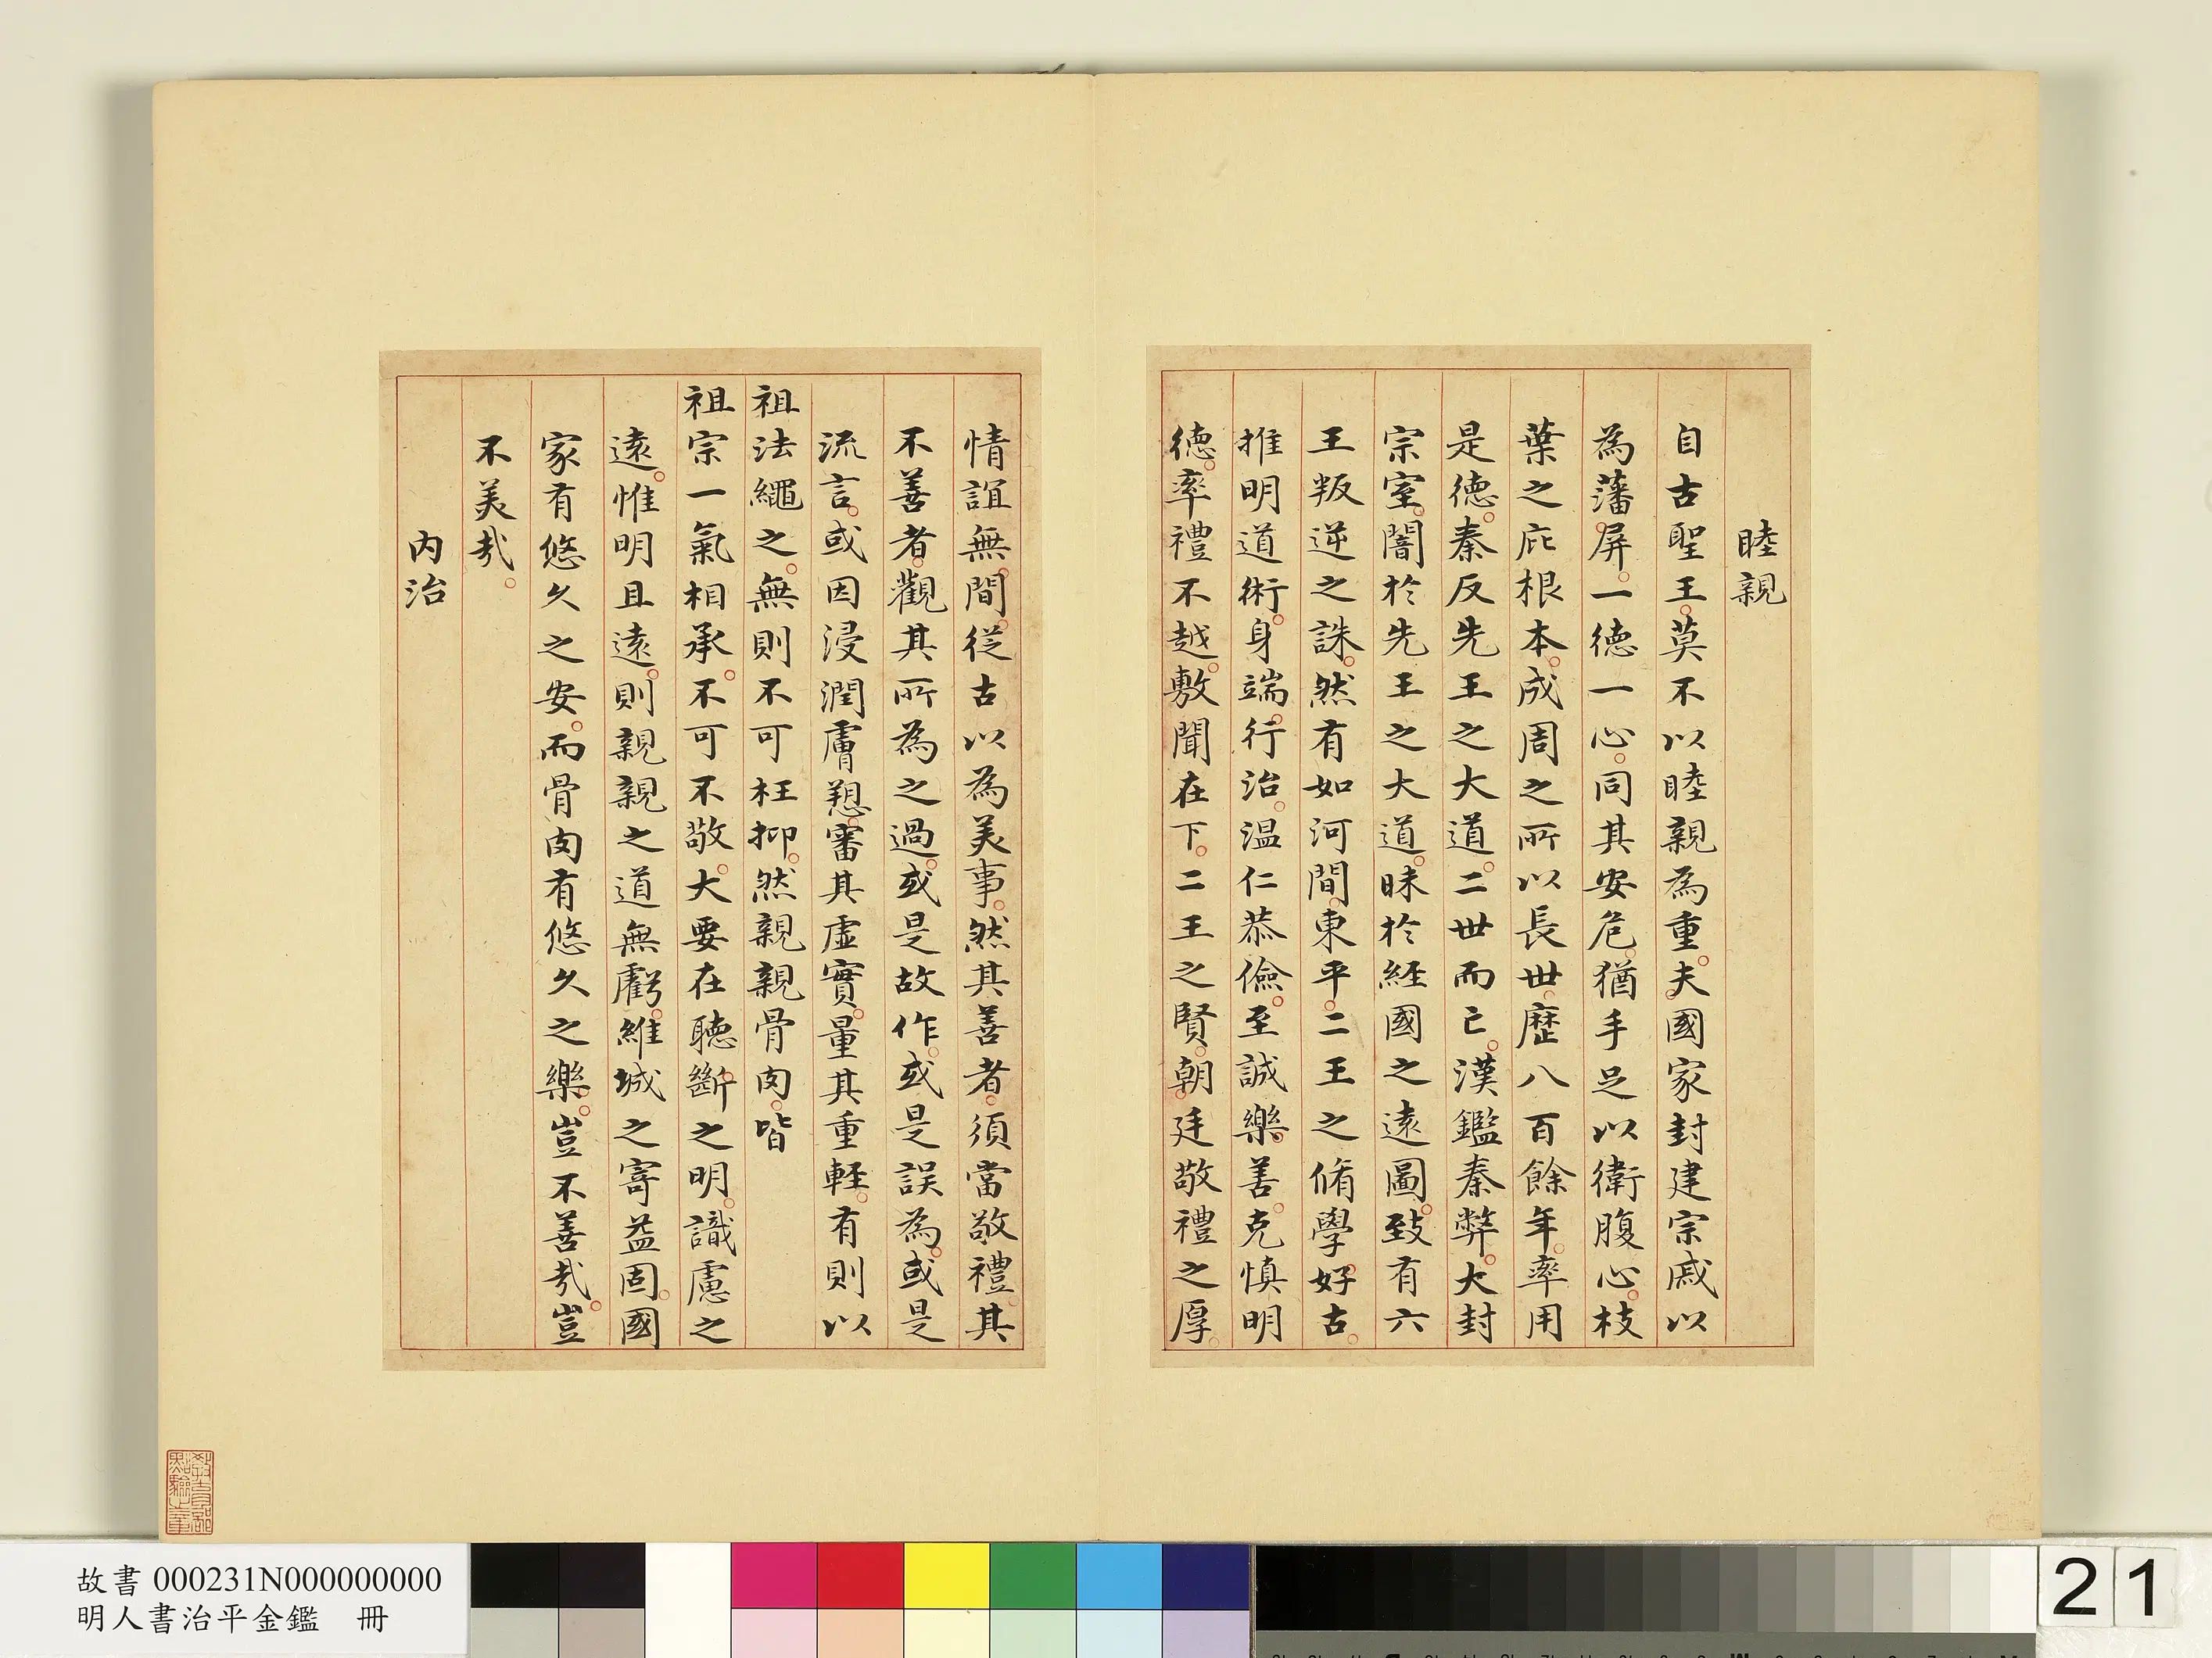 睦親
自古聖王莫不以睦親為重夫國家封建宗戚以
為藩屏一德一心同其安危猶手足以衛腹心枝
葉之庇根本成周之所以長世歷八百餘年率用
是德秦反先王之大道二世而亡漢鑑秦弊大封
宗室闇於先王之大道昧於經國之遠圖致有六
王叛逆之誅然有如河間東平二王之脩學好古
推明道術身端行治溫仁恭儉至誠樂善克慎明
德率禮不越敷聞在下二王之賢朝廷敬禮之厚
情誼無間從古以為美事然其善者須當敬禮其
不善者觀其所為之過或是故作或是誤為或是
流言或因浸潤膚愬審其虛實量其重輕有則以
祖法繩之無則不可枉抑然親親骨肉皆
祖宗一氣相承不可不敬大要在聽斷之明識慮之
遠惟明且遠則親親之道無虧維城之寄益固國
家有悠久之安而骨肉有悠久之樂豈不善哉豈
不美哉
內治
教育部點驗之章
故書 000231N000000000
明人書治平金鑑 冊
21